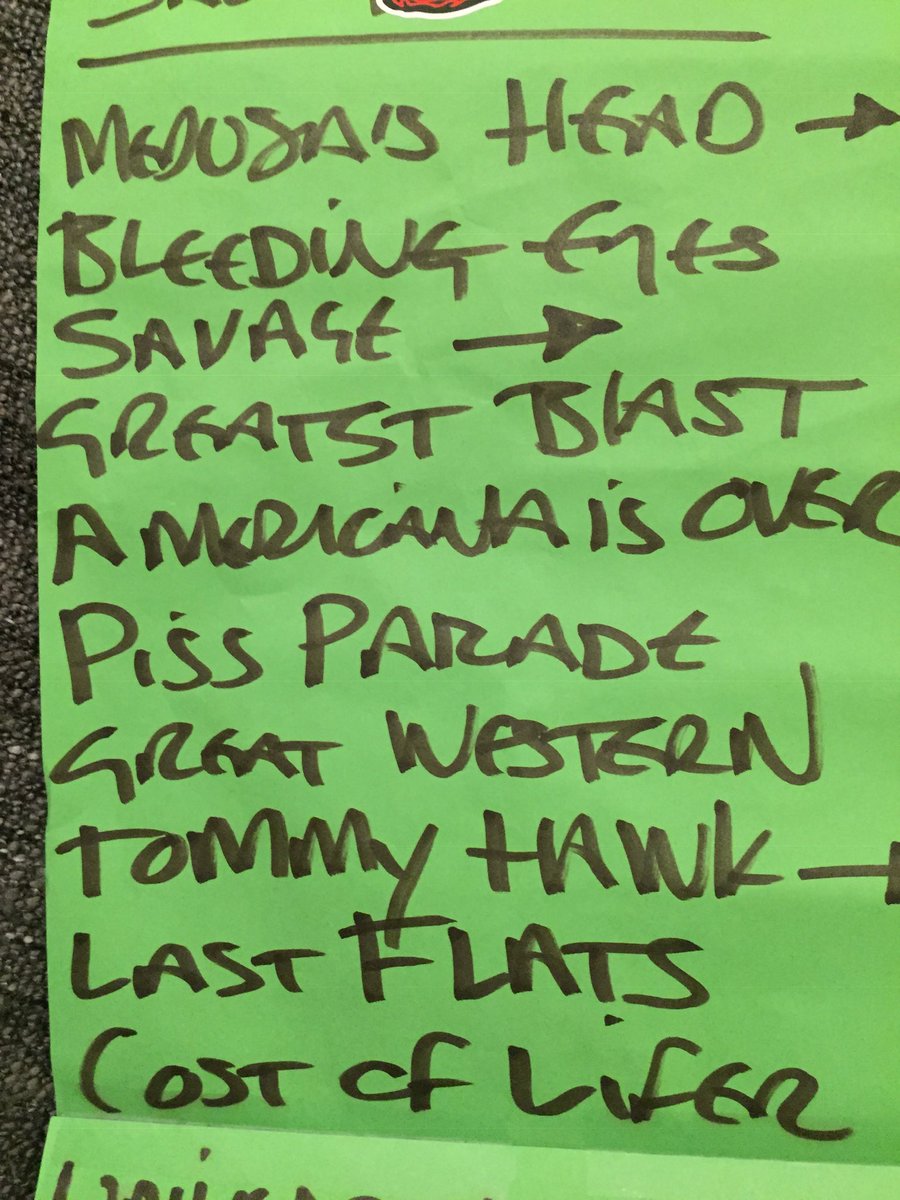 MEDUSA'S HEAD →
BLEEDING EYES
SAVAGE →
GREATST BLAST
AMERICANA is OVER
PiSS PARADE
GREAT WESTERN
TOMMY HAWK →
LAST FLATS
COST OF LiFER